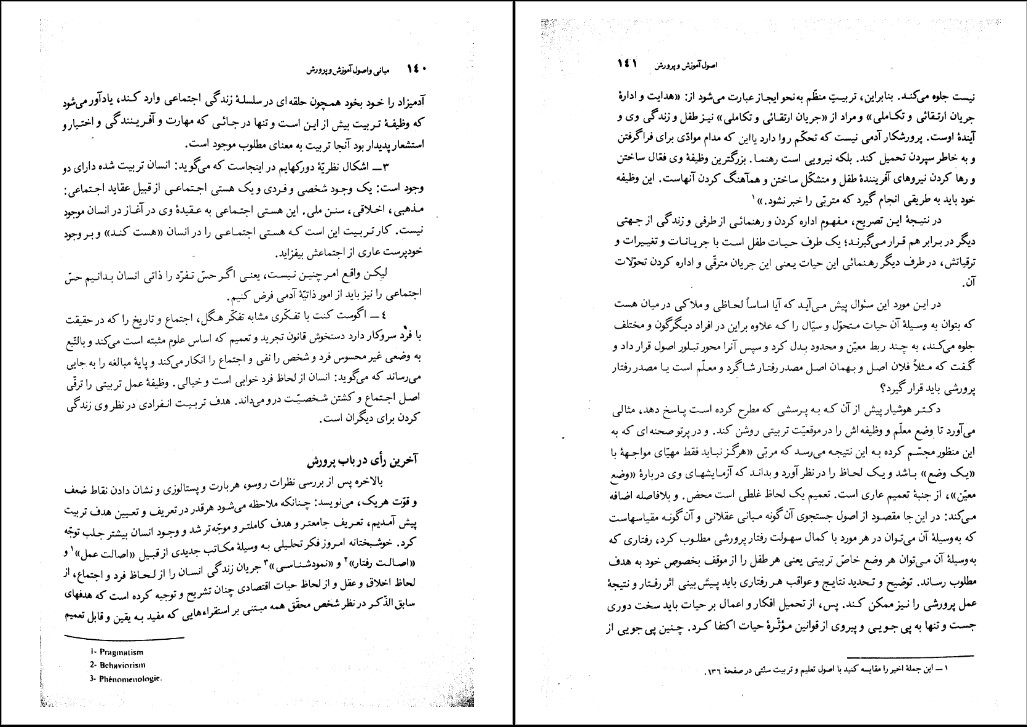 ۱٤۰ مبانی و اصول آموزش و پرورش
آدمیزاد را خـود بخود همچون حلقه ای در سلسلهٔ زندگی اجتماعی وارد کـند، یادآور می‌شود
که وظیفـهٔ تـربیت بیش از ایـن اسـت و تنها در جـائـی که مهارت و آفریـنندگی و اختیار و
استشعار پدیدار بود آنجا تربیت به معنای مطلوب موجود است.
۳ـــ اشکال نظریّهٔ دورکهایم در اینجاست که می‌گوید: انسان تربیت شده دارای دو
وجود است: یک وجـود شخصی و فـردی و یـک هستی اجتمـاعـی از قبیل عقاید اجتماعی:
مـذهبی، اخـلاقـی، سنـن ملی. این هستی اجتماعی به عقیدهٔ وی در آغاز در انسان موجود
نیست. کار تـربیت این است کـه هستی اجتماعـی را در انسان «هست کنـد» و بـر وجود
خودپرست عاری از اجتماعش بیفزاید.
لیکـن واقع امـر چنین نیـست، یعنی اگـر حسّ تـفرّد را ذاتی انسان بـدانیـم حسّ
اجتماعی را نیز باید از امور ذاتیّهٔ آدمی فرض کنیم.
٤ـــ اگوست کنت با تـفکّری مشابه تفکّر هگل، اجتماع و تاریخ را که در حقیقت
با فرد سروکار دارد دستخوش قانون تجرید و تعمیم که اساس علوم مثبته است می‌کند و بالتّبع
به وضعی غیر محسوس فرد و شخص را نفی و اجتماع را انکار می‌کند و پایهٔ مبالغه را به جایی
می‌رساند که می‌گوید: انسان از لحاظ فرد خوابی است و خیالی. وظیفهٔ عمل تربیتی را ترقّی
اصـل اجتماع و کشتن شخصیّـت درو می‌داند. هدف تـربیـت انـفرادی در نظر وی زندگی
کردن برای دیگران است.
آخرین رأی در باب پرورش
بالاخره پس از بررسی نظرات روسو، هربارت و پستالوزی و نشان دادن نقاط ضعف
و قوّت هریک، می‌نویسد: چنانکه ملاحظه می‌شود هرقدر در تعریف و تعیین هدف تربیت
پیش آمدیم، تعریف جامعتر و هدف کاملتر و موجّه‌تر شد و وجود انسان بیشتر جلب توجّه
کرد. خوشبختانه امروز فکر تحلیلی به وسیلهٔ مکاتب جدیدی از قبیل «اصالت عمل»۱ و
«اصالت رفتار»۲ و «نمودشناسی»۳ جریان زندگی انسان را از لحاظ فرد و اجتماع، از
لحاظ اخلاق و عقل و از لحاظ حیات اقتصادی چنان تشریح و توجیه کرده است که هدفهای
سابق الذّکر در نظر شخص محقّق همه مبتنی بر استقراءهایی که مفید به یقین و قابل تعمیم
1- Pragmatism
2- Behaviorism
3- Phénomenologie.
اصول آموزش و پرورش ۱٤۱
نیست جلوه می‌کند. بنابراین، تربیتِ منظّم به‌نحو ایجاز عبارت می‌شود از: «هدایت و ادارهٔ
جریان ارتـقائی و تکـاملی» و مراد از «جریان ارتـقائی و تکاملی» نـیـز طفل و زندگی وی و
آیندهٔ اوست. پرورشکار آدمی نیست که تحکّم روا دارد یااین که مدام موادّی برای فراگرفتن
و به خاطر سپردن تحمیل کند. بلکه نیرویی است رهنما. بزرگترین وظیفهٔ وی فعّال ساختن
و رها کردن نیروهای آفرینندهٔ طفل و متشکّل ساختن و همآهنگ کردن آنهاست. این وظیفه
خود باید به طریقی انجام گیرد که متربّی را خبر نشود.»۱
در نتیجهٔ این تصریح، مفهـوم اداره کردن و رهنمائی از طرفی و زندگی از جهتی
دیگر در برابر هم قرار می‌گیرند؛ یک طرف حیـات طفل است با جریـانات و تغییرات و
ترقیاتش، در طرف دیگر رهنمائی این حیات یعنی این جریان مترقّی و اداره کردن تحوّلات
آن.
در این مورد این سئوال پیش می‌آید که آیا اساساً لحاظی و ملاکی در میان هست
که بتوان به وسیلهٔ آن حیات متحوّل و سیّال را کـه علاوه بر این در افراد دیگرگون و مختلف
جلوه می‌کنـد، به چنـد ربط معیّن و محدود بـدل کرد و سپس آنرا محور تبلور اصول قرار داد و
گفت که مثلاً فلان اصل و بهمان اصل مصدر رفتـار شـاگرد و معلّم است یا مصدر رفتار
پرورشی باید قرار گیرد؟
دکتـر هوشیار پیش از آن کـه بـه پرسشی که مطرح کرده است پاسخ دهد، مثالی
می‌آورد تا وضع معلّم و وظیفه‌اش را در موقعیّت تربیتی روشن کند. و در پرتو صحنه‌ای که به
این منظور مجسّم کرده به این نتیجه می‌رسد که مربّی «هرگز نباید فقط مهیّای مواجهه با
«یک وضع» باشد و یک لحاظ را در نظر آورد و بداند که آزمایشهای وی دربارهٔ «وضع
معیّن»، از جنبهٔ تعمیم عاری است. تعمیم یک لحاظ غلطی است محض. و بلافاصله اضافه
می‌کند: در این جا مقصود از اصول جستجوی آن گونه مبانی عقلانی و آن گونه مقیاسهاست
که به‌وسیلهٔ آن می‌توان در هر مورد با کمال سهولت رفتار پرورشی مطلوب کرد، رفتاری که
به‌وسیلهٔ آن می‌توان هر وضع خاصّ تربیتی یعنی هر طفل را از موقف بخصوص خود به هدف
مطلوب رساند. توضیح و تحدید نتایج و عواقب هر رفتاری باید پیش‌بینی اثر رفتار و نتیجهٔ
عمل پرورشی را نیز ممکن کند. پس، از تحمیل افکار و اعمال بر حیات باید سخت دوری
جست و تنها به پی‌جویـی و پیروی از قوانین مؤثّرهٔ حیات اکتفا کرد. چنین پی‌جویی از
۱ـــ این جملهٔ اخیر را مقایسه کنید با اصول تعلیم و تربیت سنّتی در صفحهٔ ۱۳٦.